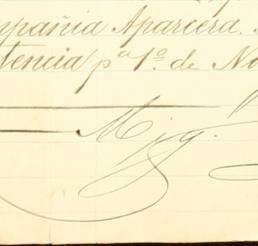 mpañia Aparcera.
tencia pª 1º. de No
Mig.